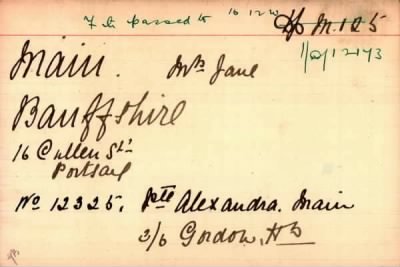 F 46 passed to 16 12 W Hf M.125
1/2/1243
Main. Mrs Jane
Banffshire
16 Cullen St.
Portsoy
No 12325, Pte Alexandra. Main
3/6 Gordon, Hrs